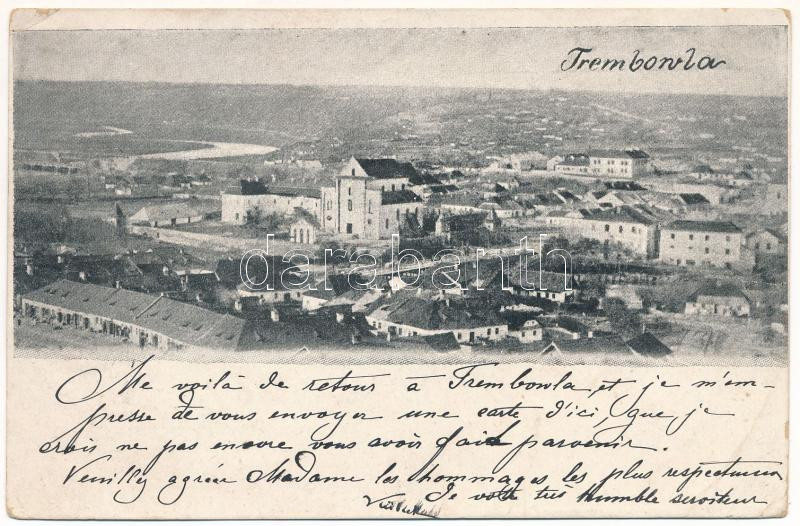 Trembowla
darabanth
Me voilà de retour à Trembowla, et je m'em-
presse de vous envoyer une carte d'ici, que je
crois ne pas encore vous avoir fait parvenir.
Veuilly agréer Madame les hommages les plus respectueux
de votre très humble serviteur